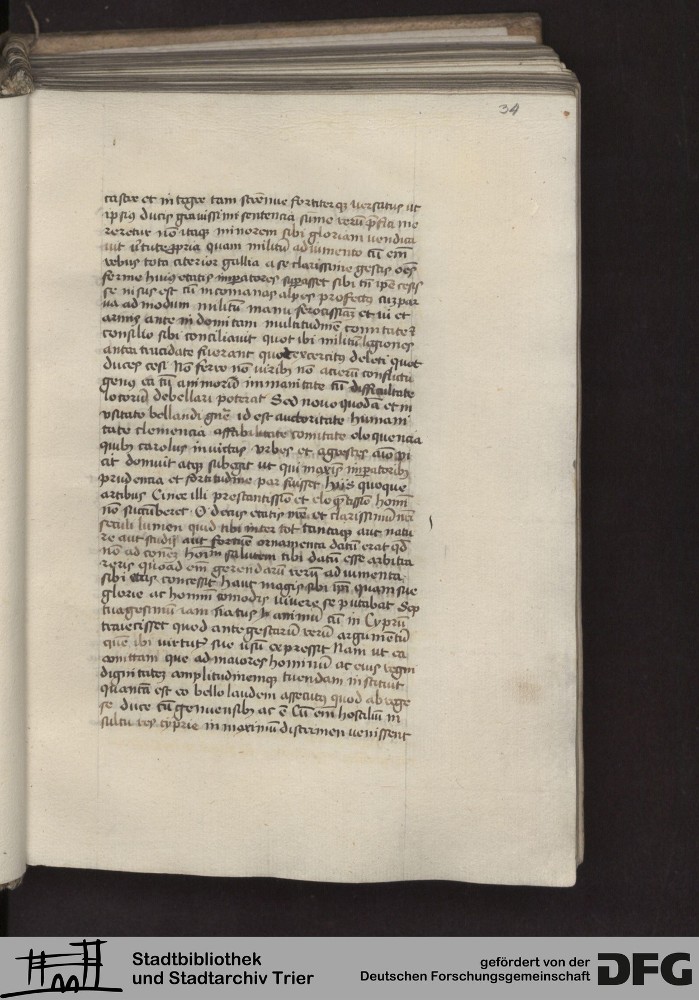 34
castre et in togre tam strenue fortiterq; versatus ut
ipsius ducis gravissimi sententia sume rerū p̄fici me
reretur nō itaq; minorem sibi gloriam vendica
vit v̄tute ꝓpria quam militū adiumento cū em̄
rebus tota citerior gallia a se clarissime gestis oēs
ferme huius etatis imꝑatores suꝑasset sibi tn̄
se nisus est cū in comanas alpes profectus cū par
va ad modum militū manu ferocissimā et vi et
armis ante in domitam multitudinē comitate et
consilio sibi conciliavit quot ibi militū legiones
antea trucidate fuerant quot exercitus deleti quot
duces cesi Nō ferro nō viribus nō acierū conflictu
genus ea tū animorū immanitate tū difficultate
locorum debellari poterat Sed novo quodā et in
usitato bellandi gn̄e id est auctoritate humani
tate clemencia affabilitate comitate eloquencia
quibus carolus invictus urbes et agrestes
cit domuit atq; subegit ut qui maxis imꝑatoribus
prudencia et fortitudine par fuisset hys quoque
artibus Cinee illi prestantissīo et eloq̄tissīo homī
nō sucūberet O decus etatis nr̄e et clarissimū nr̄i
seculi lumen quid tibi inter tot tantaq; aut natu
re aut studij aut fortūe ornamenta datū erat qd̄
nō ad cōmet hoim̄ salutem tibi datū esse arbitra
reris quoad em̄ gerendarū rerū adiumenta
sibi etas concessit haut magis sibi ip̄i quam sue
glorie ac hominū comodis vivere se putabat Sep
tuagesimū iam natus annum cū in Cyprū
traiecisset quod ante gestarū rerū argumentū
quē ibi virtutis sue usū expressit Nam ut ea
omittam que ad maiores hominū ac eius regni
dignitatem amplitudinemq; tuendam instituit
quantā est eo bello laudem assecutus quod ab rege
se duce cū genuensibus ac ē Cū em̄ hostiliū in
sultu res cyprie in maximū discrimen venissent
Stadtbibliothek
und Stadtarchiv Trier
gefördert von der
Deutschen Forschungsgemeinschaft
DFG